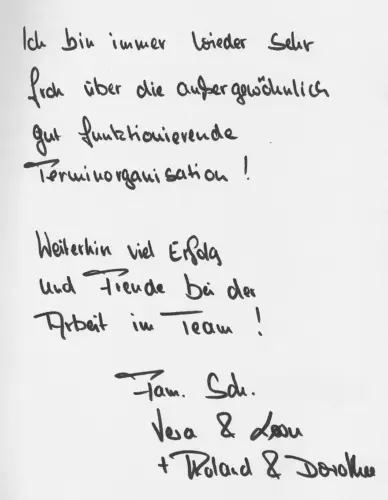 Ich bin immer wieder sehr
froh über die außergewöhnlich
gut funktionierende
Terminorganisation!
Weiterhin viel Erfolg
und Freude bei der
Arbeit im Team!
Fam. Sch.
Vera & Leon
+ Roland & Dorothee